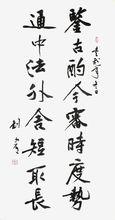 鑒古酌今審時度勢
通中法外舍短取長